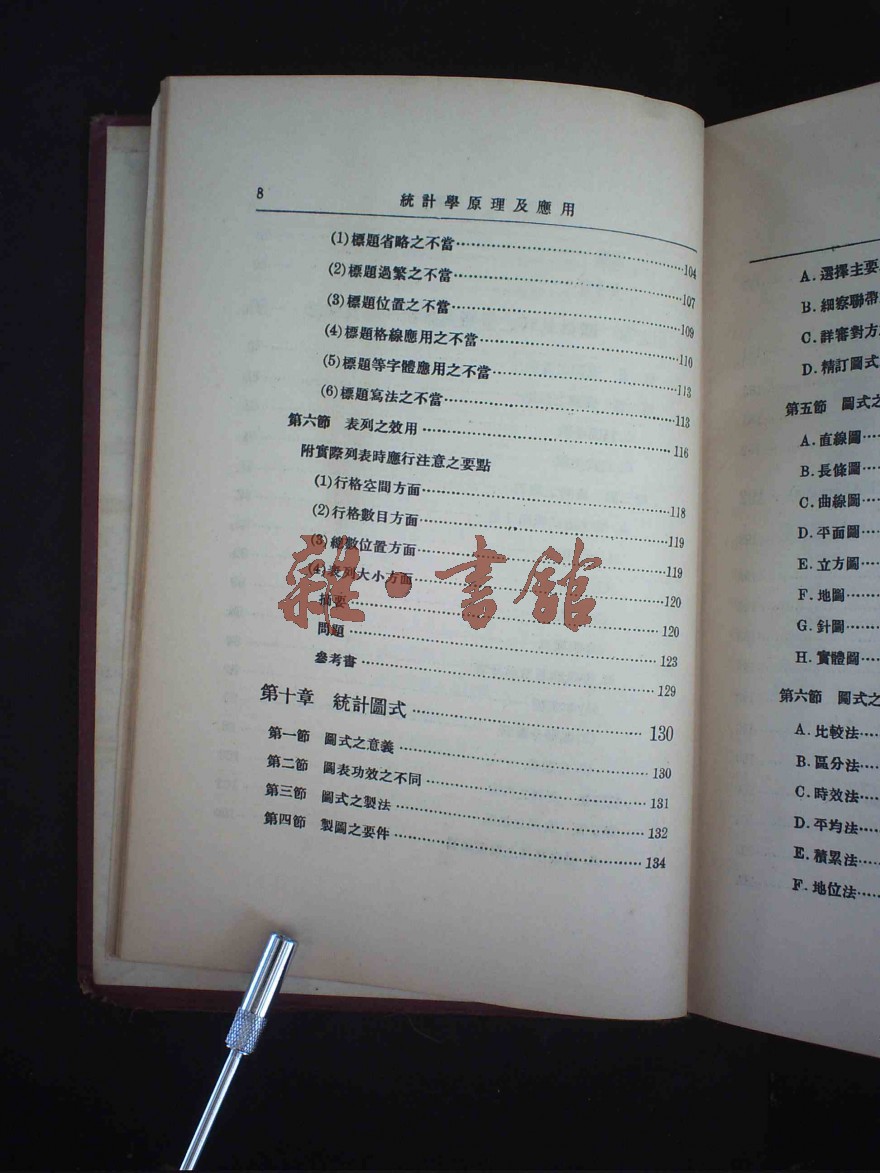 8 統計學原理及應用
(1)標題省略之不當……104
(2)標題過繁之不當……107
(3)標題位置之不當……109
(4)標題格線應用之不當……110
(5)標題等字體應用之不當……113
(6)標題寫法之不當……113
第六節 表列之效用……116
附實際列表時應行注意之要點
(1)行格空間方面……118
(2)行格數目方面……119
(3)總數位置方面……119
(4)表列大小方面……120
摘要……120
問題……123
參考書……129
第十章 統計圖式……130
第一節 圖式之意義……130
第二節 圖表功效之不同……131
第三節 圖式之製法……132
第四節 製圖之要件……134
雜·書館
A.選擇主要
B.細察聯帶
C.詳審對方
D.精訂圖式
第五節 圖式之
A.直線圖……
B.長條圖……
C.曲線圖……
D.平面圖……
E.立方圖……
F.地圖……
G.針圖……
H.實體圖……
第六節 圖式之
A.比較法……
B.區分法……
C.時效法……
D.平均法……
E.積累法……
F.地位法……